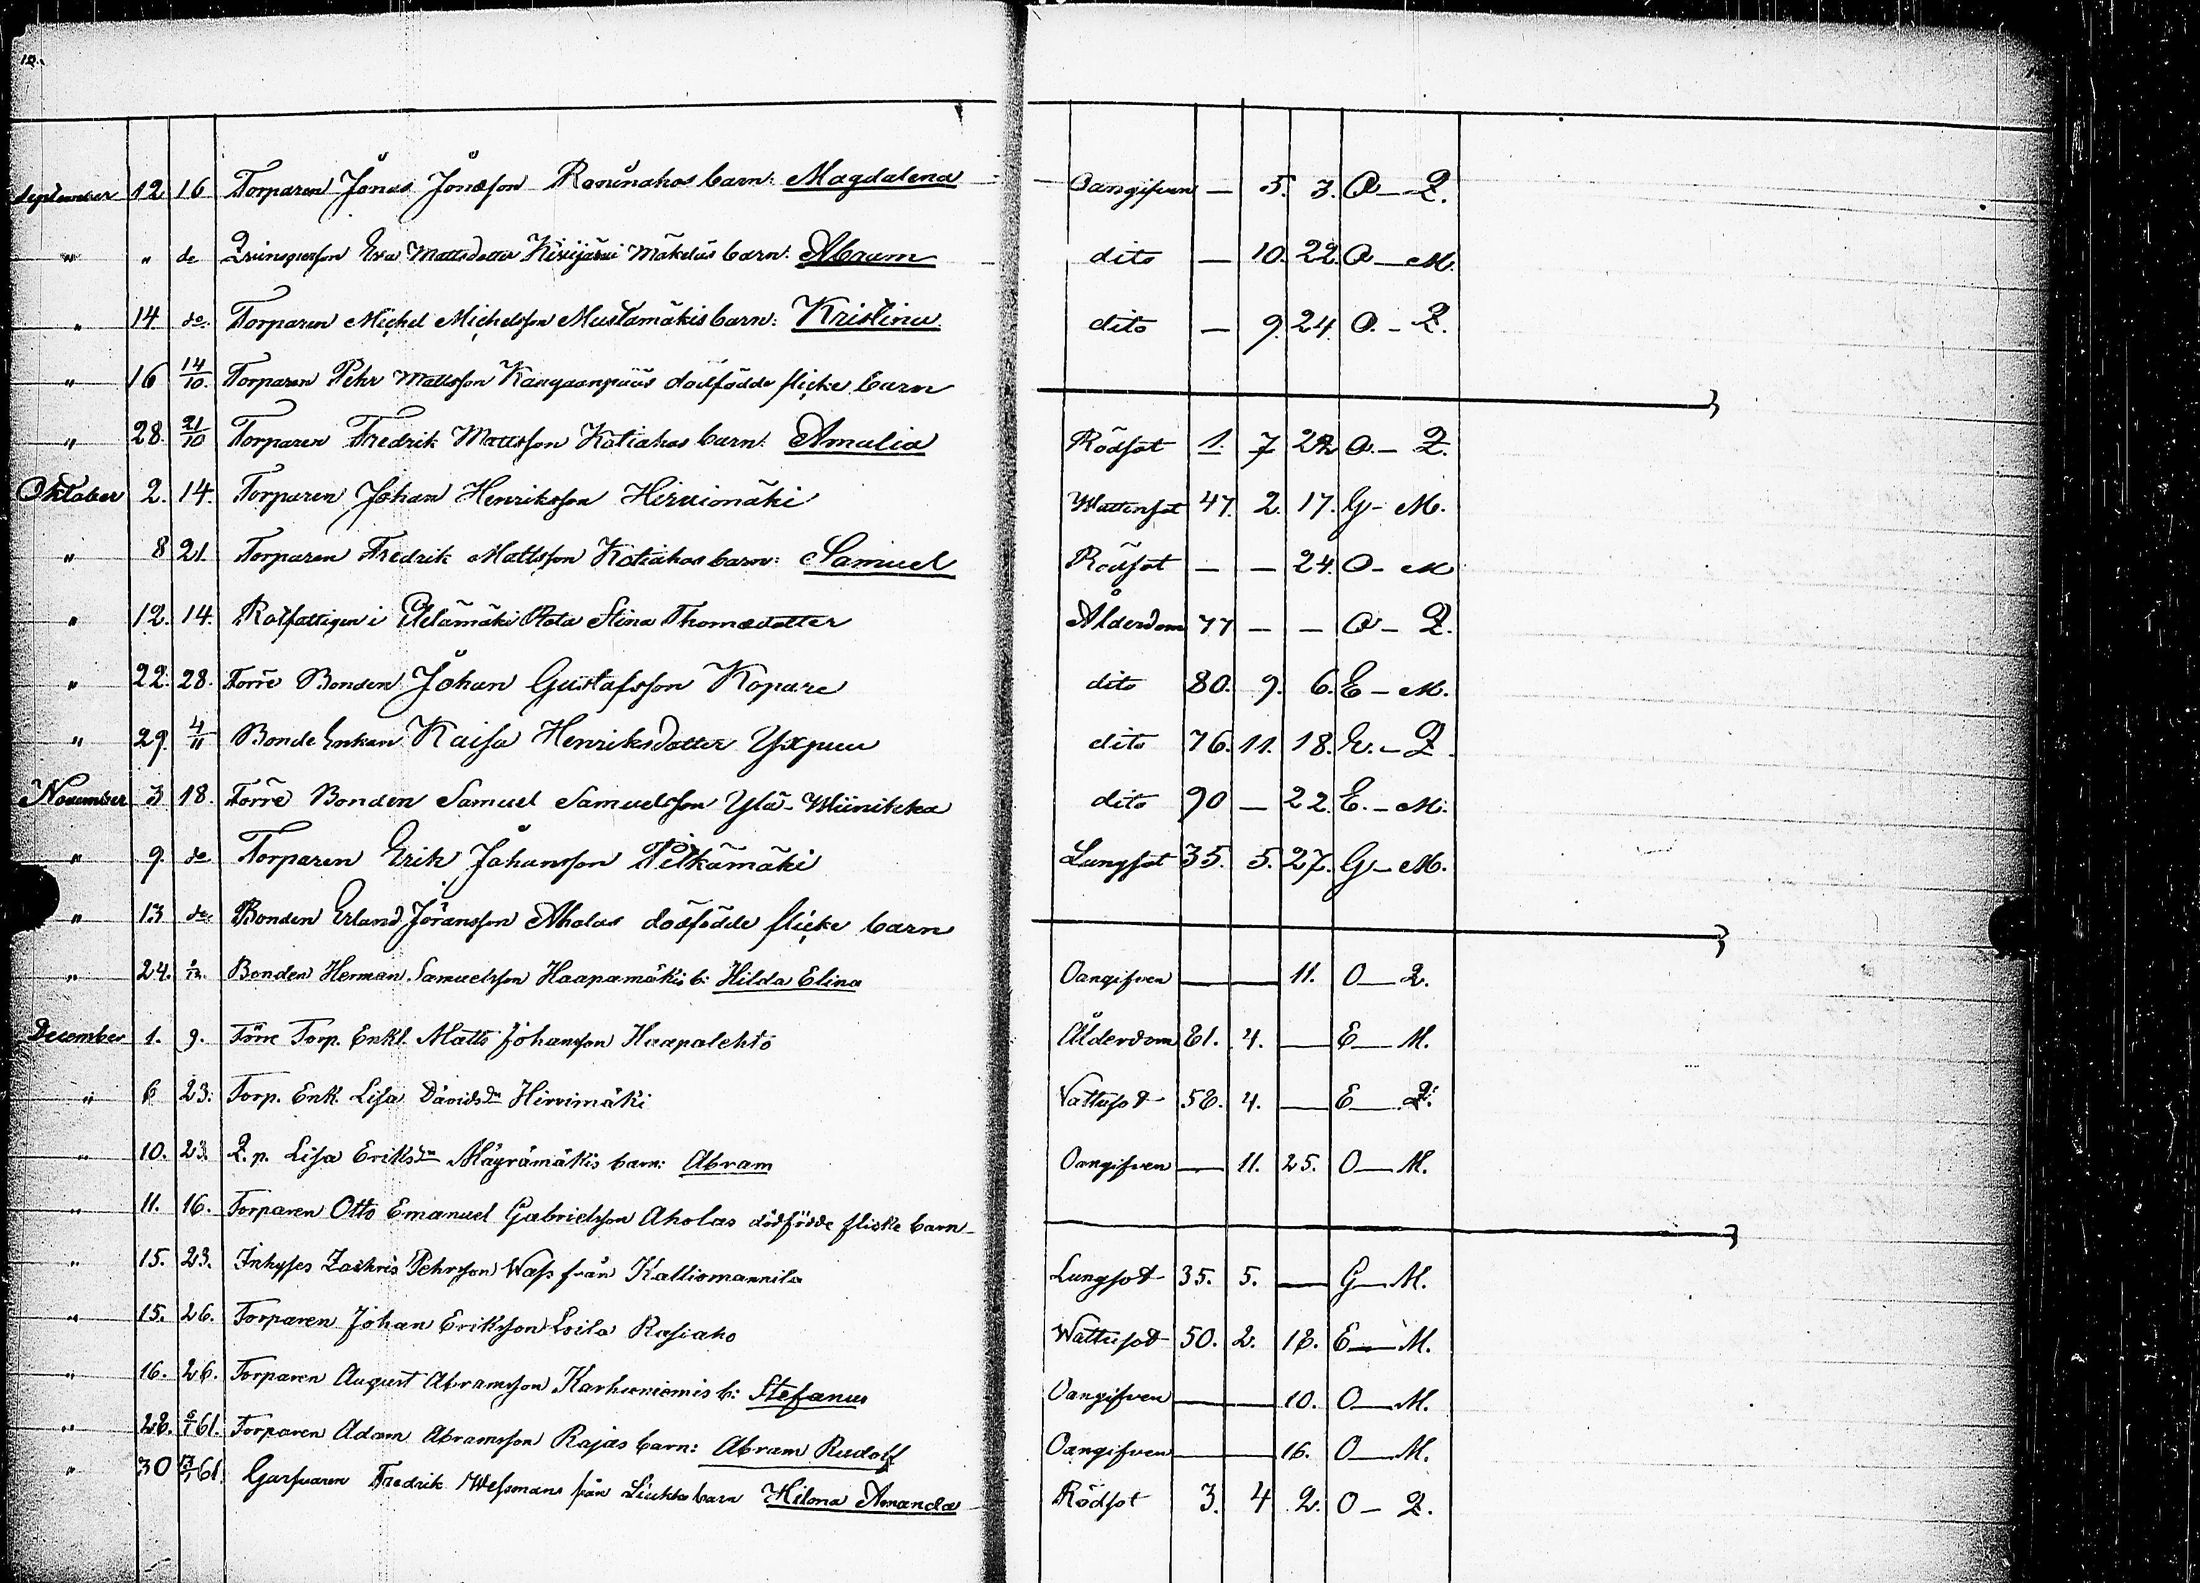 12.
September 12 16 Torparen Jonas Jonasson Ronunahos barn: Magdalena Oangifven — 5. 3. O — Q.
" " do Qvinspersson Eva Mattsdotter Kivijärvi Mäkeläs barn: Abram dito — 10. 22. O — M.
" 14 do Torparen Michel Michelsson Mustamäkis barn: Kristina dito — 9. 24. O. - Q.
" 16 14/10. Torparen Pehr Mattsson dödfödde flicke barn
" 28. 21/10 Torparen Fredrik Mattsson Kotiahos barn: Amalia Rödsot 1. 7 22 O. - Q.
Oktober 2. 14. Torparen Johan Henriksson Hirvimäki Wattensot 47. 2. 17. G - M.
" 8 21. Torparen Fredrik Mattsson Kotiahos barn: Samuel Rödsot — — 24. O - M
" 12. 14. Rotfattigen i Etelämäki Rota Stina Thomasdotter Ålderdom 77 — — O - Q.
" 22. 28. Förre Bonden Johan Gustafsson Kopare dito 80. 9. 6. E - M.
" 29. 4/11 Bonde Enkan Kaisa Henriksdotter Yxpuu dito 76. 11. 18. E. - Q.
November 3 18. Förre Bonden Samuel Samuelsson Ylä-Wiinikka dito 90 — 22. E. - M.
" 9. do Torparen Erik Johansson Pitkämäki Lungsot 35. 5. 27. G - M.
" 13 do Bonden Erland Göransson Aholas dödfödde flicke barn
" 24. Bonden Herman Samuelsson Haapamäkis b: Hilda Elina Oangifven — — 11. O — Q.
December 1. 9. Förre Torp. Enkl. Matts Johansson Haapalehto Ålderdom 81. 4. — E — M.
" 6 23. Torp. Enk. Lisa Davidsdr Hirvimäki Vattusot 58. 4. — E — Q.
" 10. 23. Q. p. Lisa Eriksdr Mäyrämäkis barn: Abram Oangifven — 11. 25. O — M.
" 11. 16. Torparen Otto Emanuel Gabrielsson Aholas dödfödde flicke barn
" 15. 23. Inhyses Zachris Pehrsson Wass från Kalliomannila Lungsot 35. 5. — G — M.
" 15. 26. Torparen Johan Eriksson Loila Rasiaho Wattusot 50. 2. 18. E — M.
" 16. 26. Torparen August Abramsson Karhuniemis b: Stefanus Oangifven — — 10. O — M.
" 28. 6/1 61. Torparen Adam Abramsson Rajas barn: Abram Rudolf Oangifven — — 16. O — M.
" 30 13/1 61 Garfvaren Fredrik Wessmans från barn Hilma Amanda Rödsot 3. 4 2. O - Q.